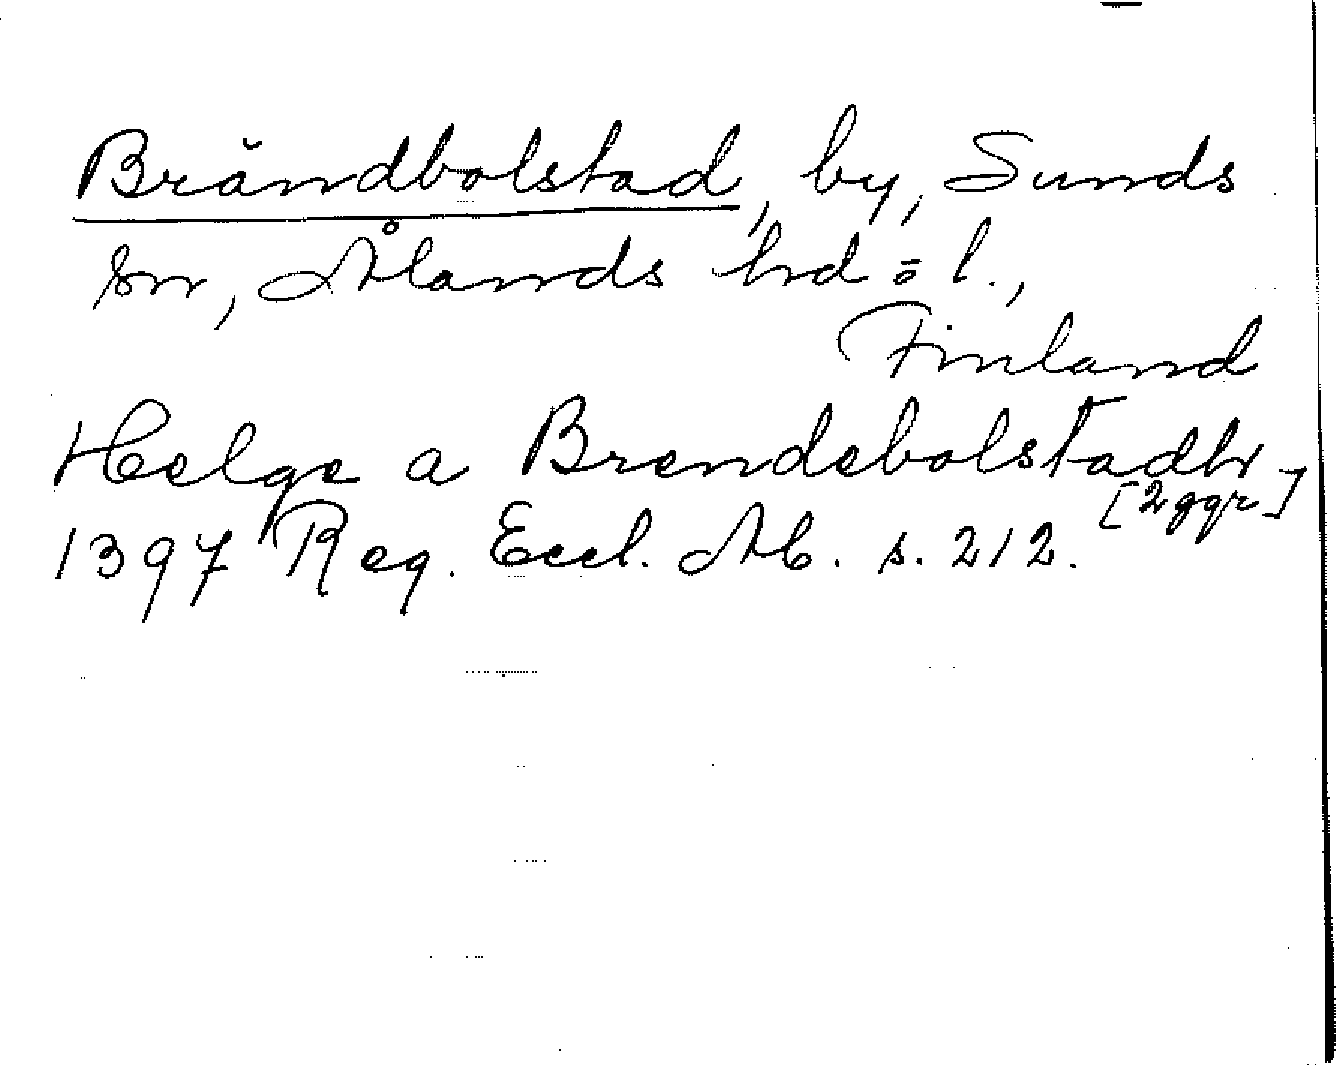 Brändbolstad, by, Sunds
sn, Ålands hd = l.,
Finland
Helge a Brendebolstadh
[2 ggr]
1397 Reg. Eccl. Ab. s. 212.